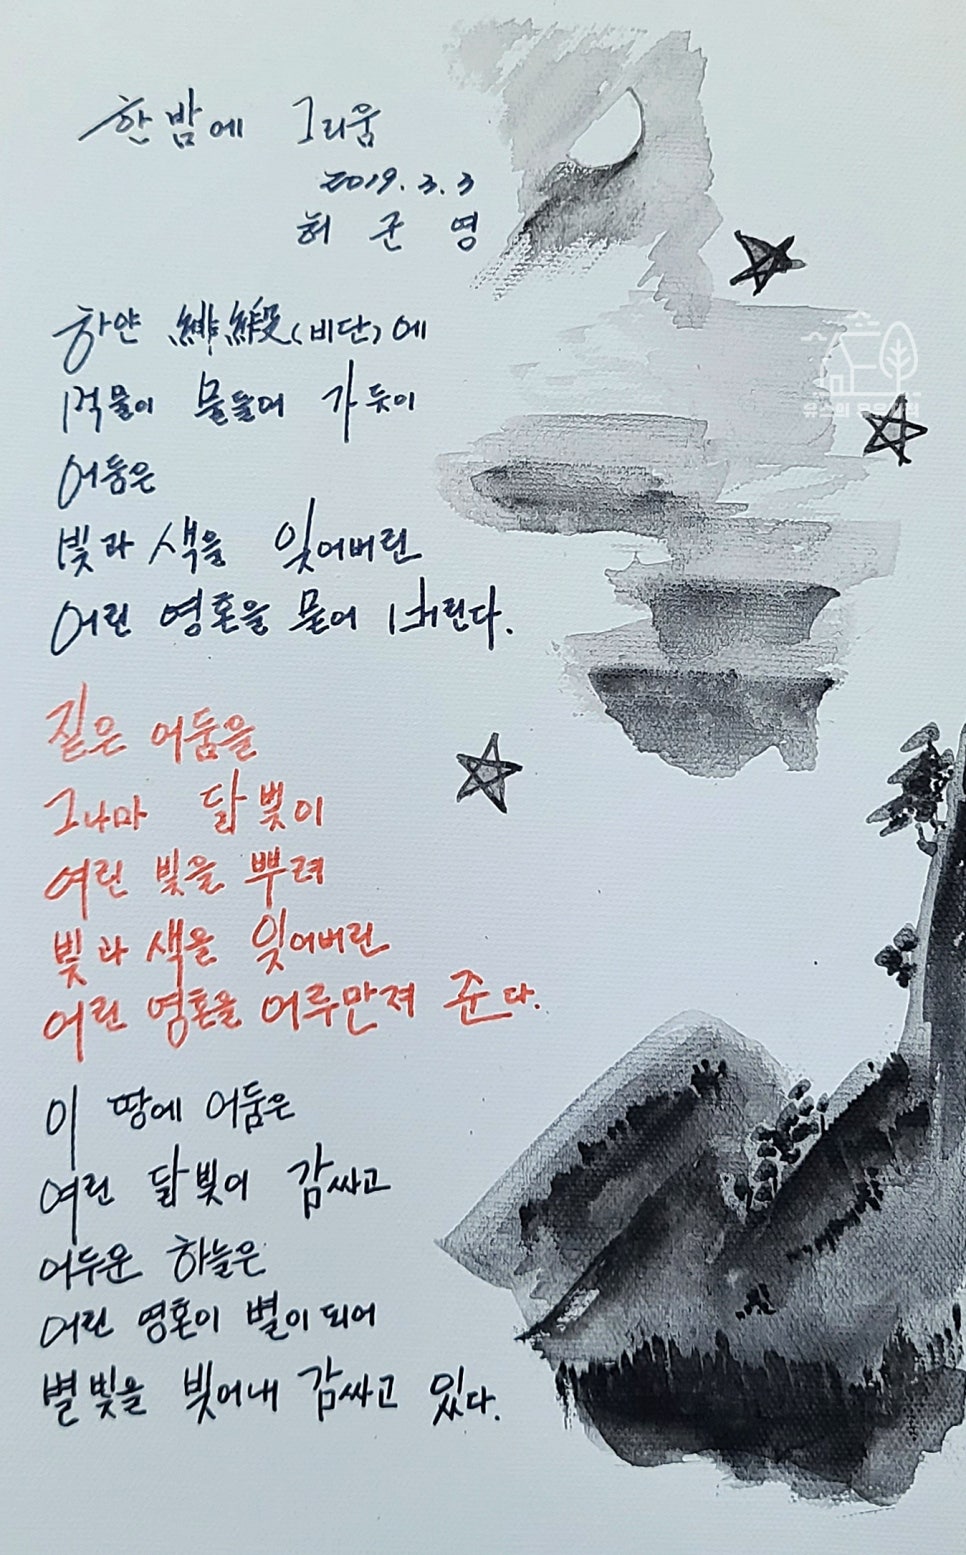 한밤에 그리움
2019. 3. 3
허 군 영
하얀 緋緞(비단)에
먹물이 물들여 가듯이
어둠은
빛과 색을 잊어버린
어린 영혼을 물어 버린다.
짙은 어둠을
그나마 달빛이
여린 빛을 뿌려
빛과 색을 잊어버린
어린 영혼을 어루만져 준다.
이 땅에 어둠은
여린 달빛이 감싸고
어두운 하늘은
어린 영혼이 별이 되어
별빛을 빚어내 감싸고 있다.